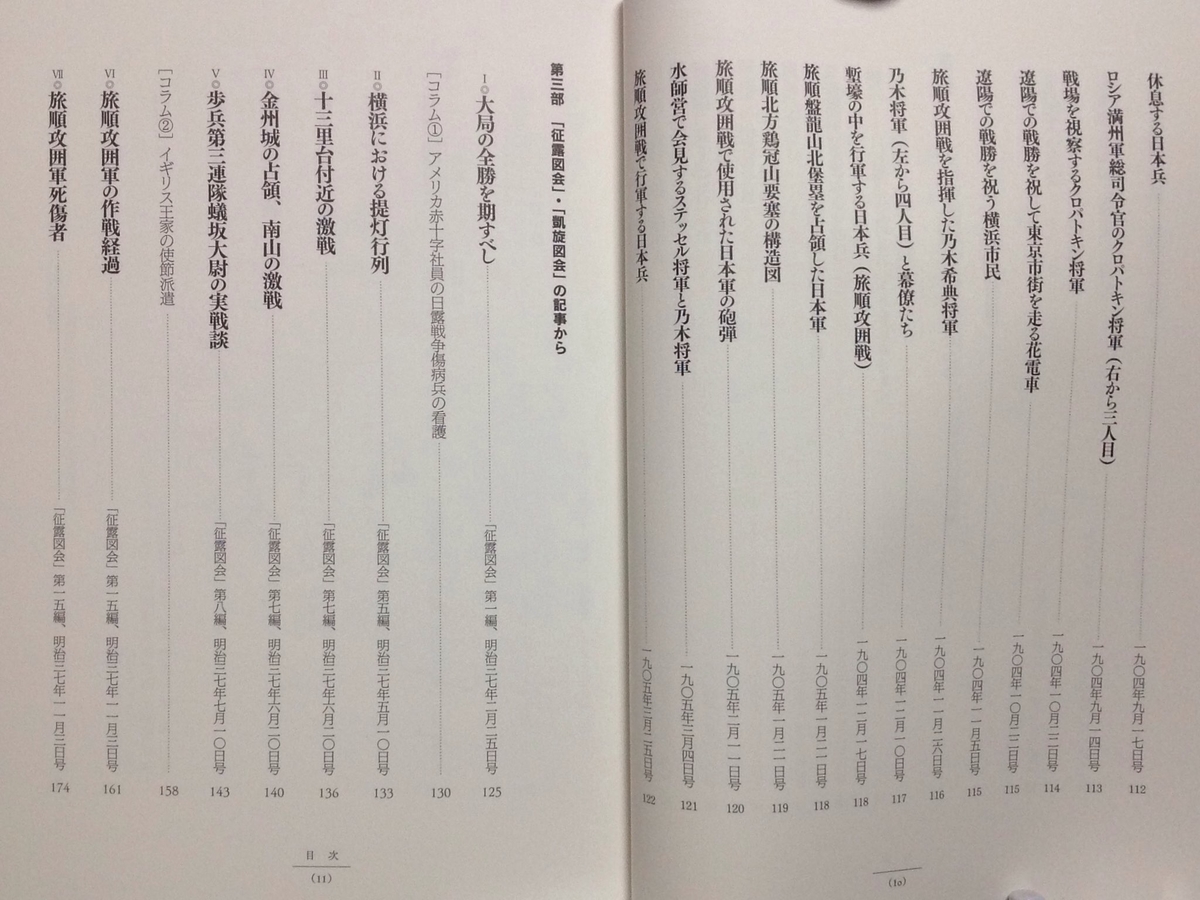 休息する日本兵 一九〇四年九月一七日号 112
ロシア満州軍総司令官のクロパトキン将軍（右から三人目） 一九〇四年九月一四日号 113
戦場を視察するクロパトキン将軍 一九〇四年一〇月二二日号 114
遼陽での戦勝を祝して東京市街を走る花電車 一九〇四年一〇月二二日号 115
遼陽での戦勝を祝う横浜市民 一九〇四年一一月五日号 115
旅順攻囲戦を指揮した乃木希典将軍 一九〇四年一一月二六日号 116
乃木将軍（左から四人目）と幕僚たち 一九〇四年一二月一〇日号 117
塹壕の中を行軍する日本兵（旅順攻囲戦） 一九〇四年一二月一七日号 118
旅順盤龍山北堡塁を占領した日本軍 一九〇五年一月二一日号 118
旅順北方鶏冠山要塞の構造図 一九〇五年一月二一日号 119
旅順攻囲戦で使用された日本軍の砲弾 一九〇五年二月一一日号 120
水師営で会見するステッセル将軍と乃木将軍 一九〇五年三月四日号 121
旅順攻囲戦で行軍する日本兵 一九〇五年三月二五日号 122
(10)
第三部 「征露図会」・「凱旋図会」の記事から
Ⅰ◎大局の全勝を期すべし 「征露図会」第一編、明治三七年二月二五日号 125
［コラム①］アメリカ赤十字社員の日露戦争傷病兵の看護 130
Ⅱ◎横浜における提灯行列 「征露図会」第五編、明治三七年五月一〇日号 133
Ⅲ◎十三里台付近の激戦 「征露図会」第七編、明治三七年六月二〇日号 136
Ⅳ◎金州城の占領、南山の激戦 「征露図会」第七編、明治三七年六月二〇日号 140
Ⅴ◎歩兵第三連隊蟻坂大尉の実戦談 「征露図会」第八編、明治三七年七月一〇日号 143
［コラム②］イギリス王家の使節派遣 158
Ⅵ◎旅順攻囲軍の作戦経過 「征露図会」第一五編、明治三七年一一月三日号 161
Ⅶ◎旅順攻囲軍死傷者 「征露図会」第一五編、明治三七年一一月三日号 174
目 次
(11)